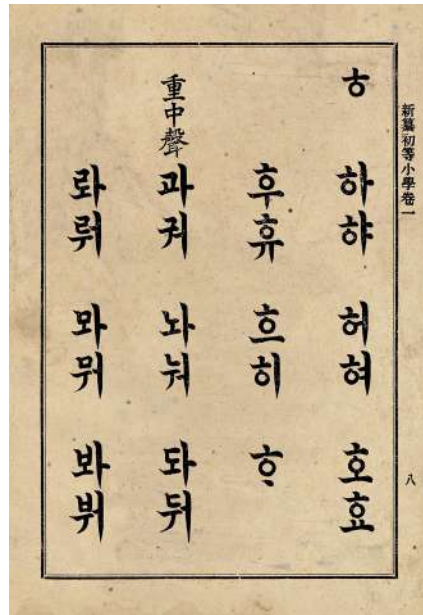 新纂初等小學卷一 八
ㅎ 하햐 허혀 호효
후휴 흐히 ᄒᆞ
重中聲 과궈 놔눠 돠둬
롸뤄 뫄뭐 봐붜